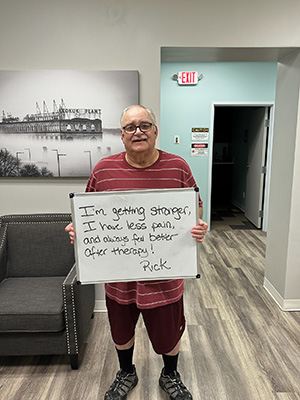 EXIT
CAUTION
I'm getting stronger,
I have less pain,
and always feel better
after therapy!
Rick